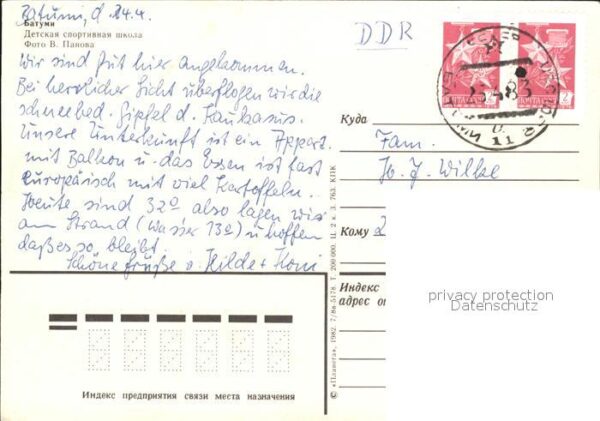 Batumi, d. 24.4.
Батуми
Детская спортивная школа
Фото В. Панова
DDR
Wir sind gut hier angekommen.
Bei herrlicher Sicht überflogen wir die
schneebed. Gipfel d. Kaukasus.
Unsere Unterkunft ist ein Appart.
mit Balkon u. das Essen ist fast
europäisch mit viel Kartoffeln.
Heute sind 32° also lagen wir
am Strand (Wasser 13°) u. hoffen
daß es so bleibt.
Schöne Grüße v. Hilde +
ПОЧТА СССР
ПОЧТА СССР
СССР
83
11
Куда
Fam.
Wilke
Кому
Индекс
адрес
privacy protection
Datenschutz
Индекс предприятия связи места назначения
© «Планета», 1982. 7/8в-5178. Т. 200 000. Ц. 2 к. З. 763. КПК